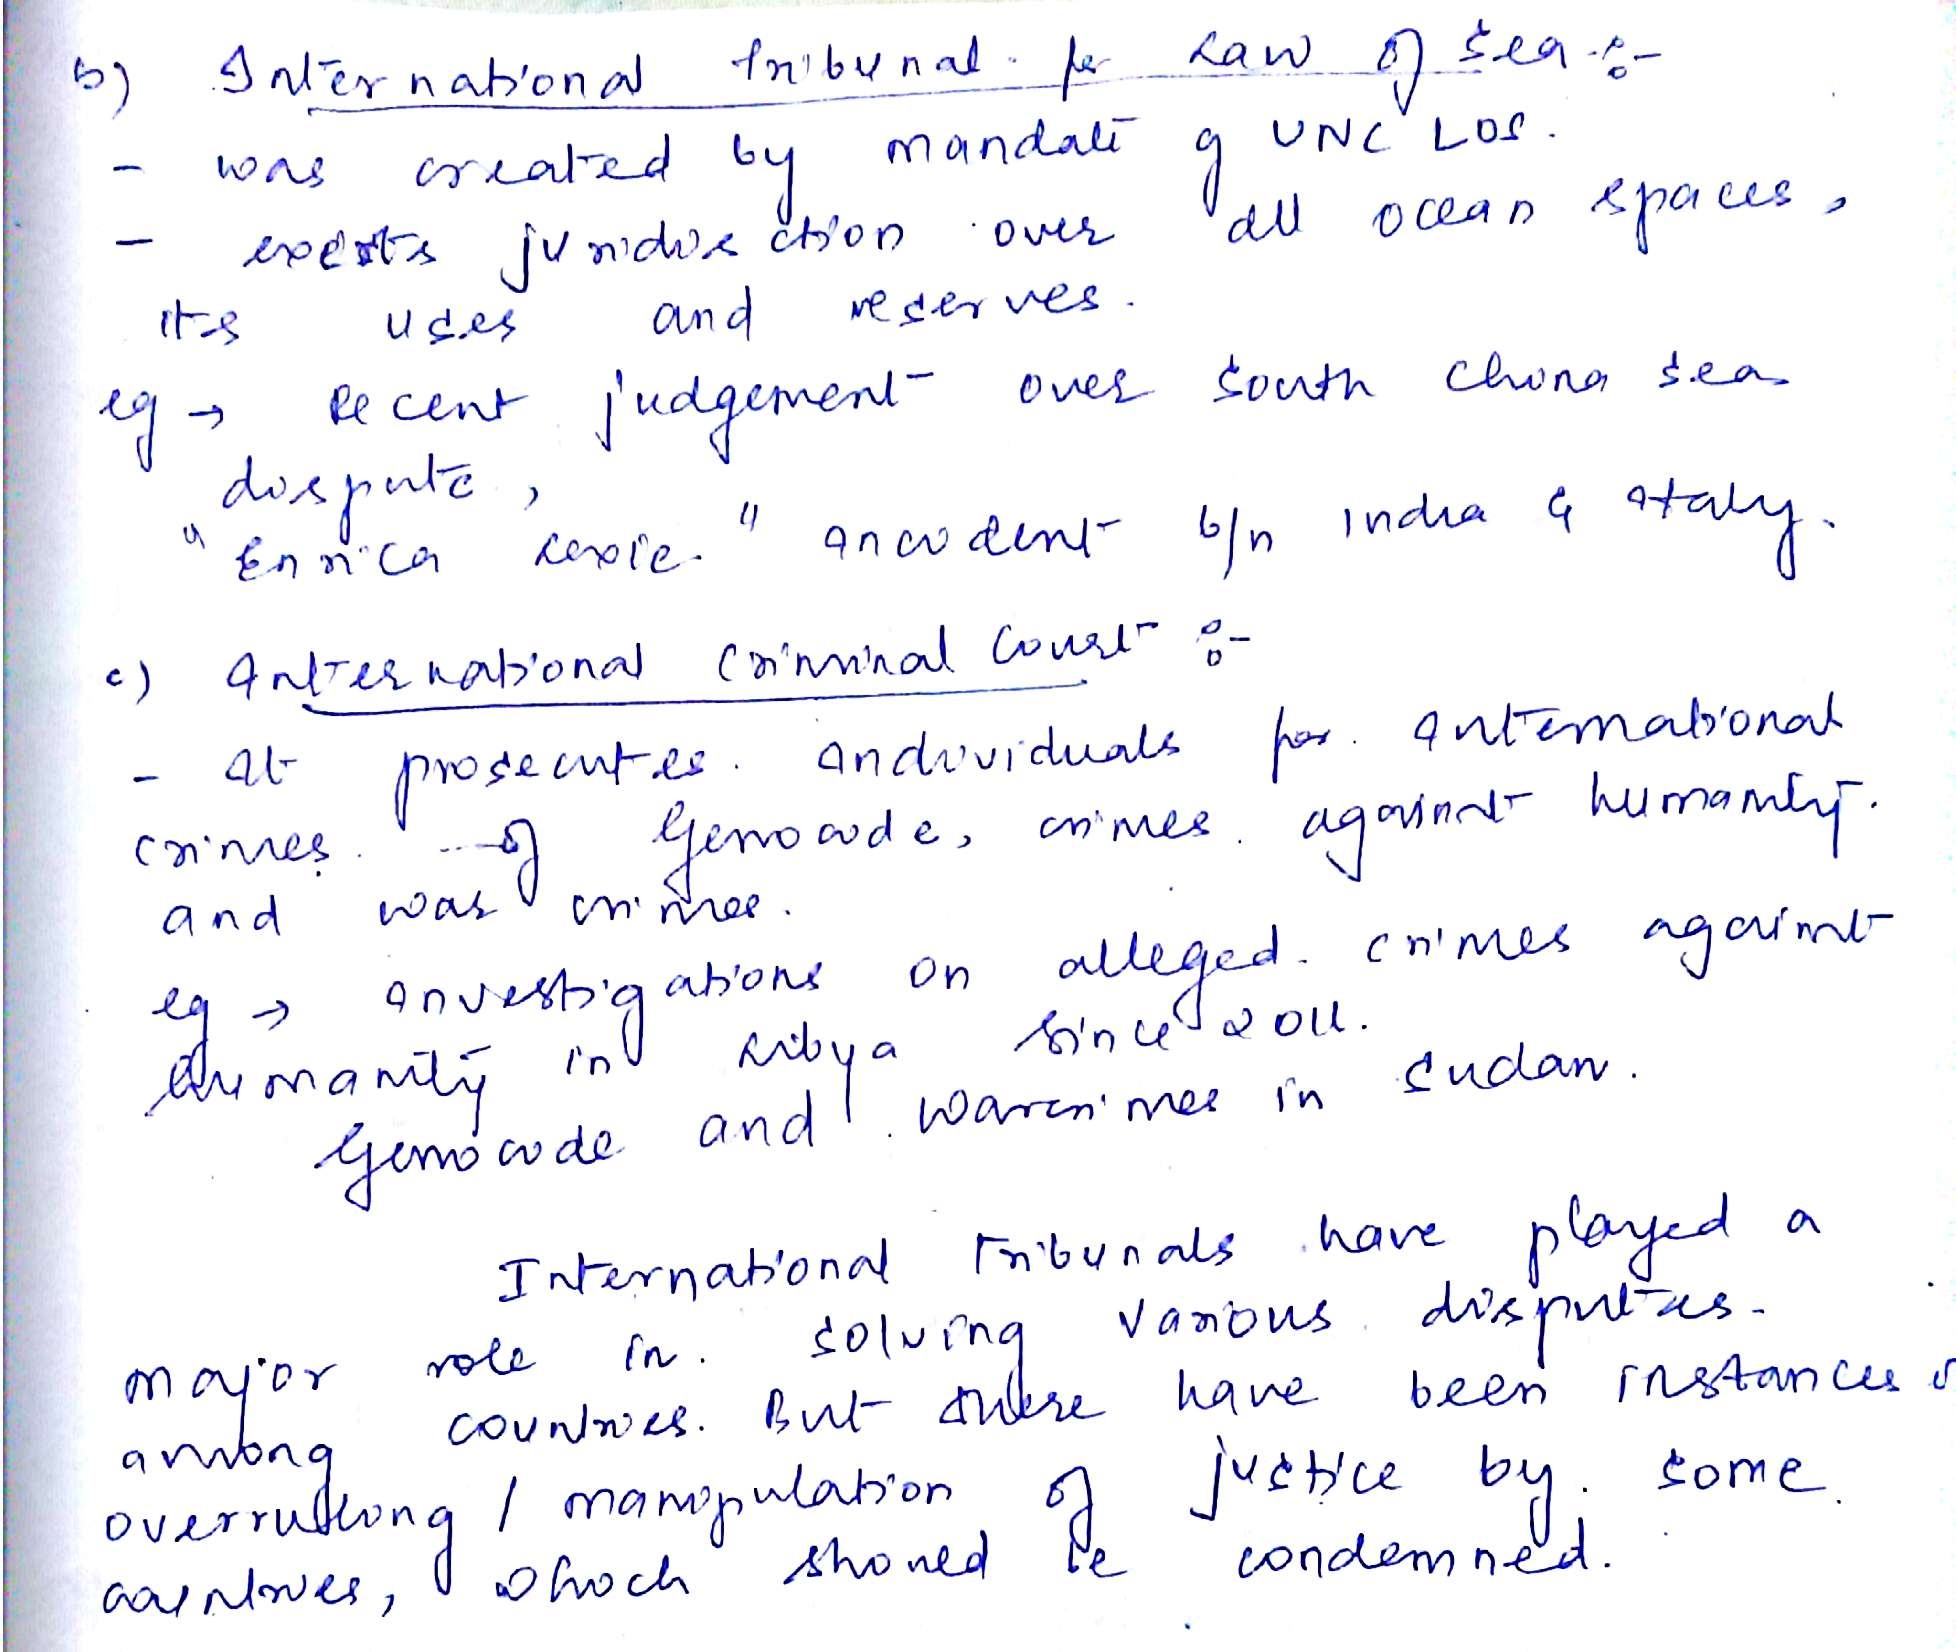 b) International Tribunal for Law of Sea :-
- was created by mandate of UNCLOS.
- exerts juridisction over all ocean spaces,
its uses and reserves.
eg → Recent judgement over South China Sea
dispute,
"Enrica Lexie" incident b/n India & Italy.
c) International Criminal Court :-
- It prosecutes individuals for international
crimes of Genocide, crimes against humanity
and war crimes.
eg → Investigations on alleged crimes against
humanity in Libya since 2011.
Genocide and warcrimes in Sudan.
International Tribunals have played a
major role in solving various disputes
among countries. But there have been instances
overruling / manipulation of justice by some
countries, which should be condemned.